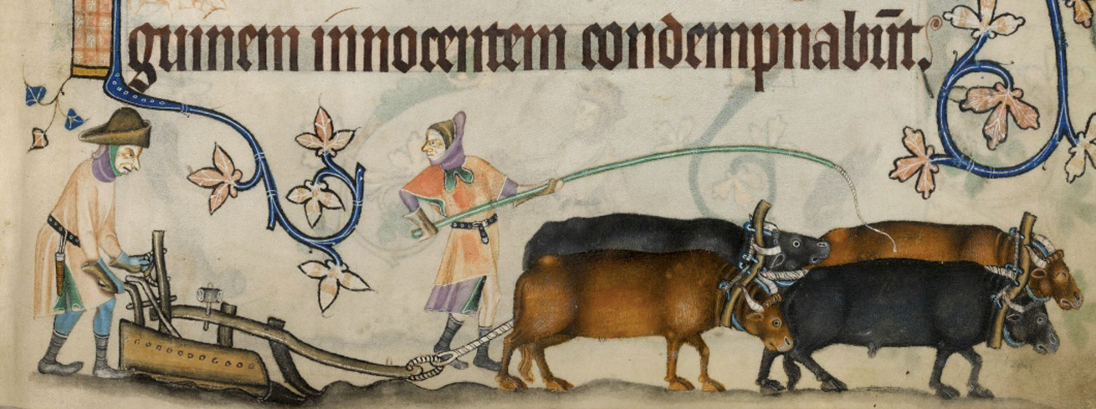 guinem innocentem condempnabūt.